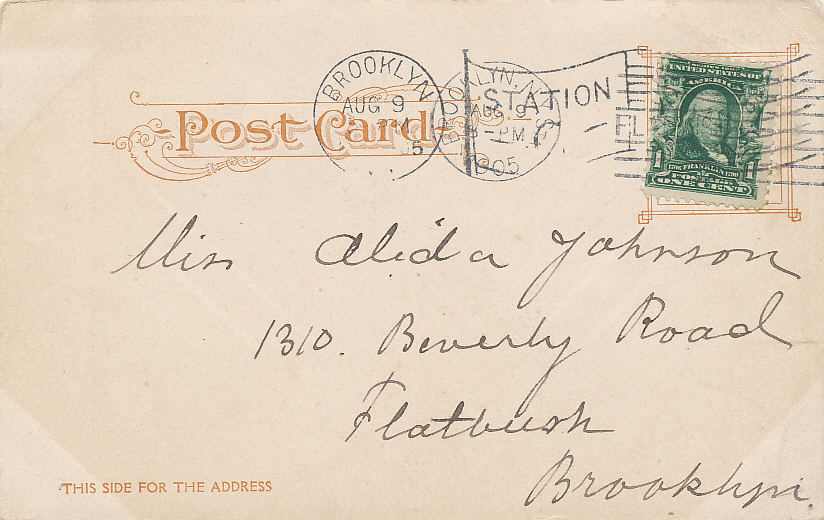 BROOKLYN
AUG 9
PM
5
BROOKLYN, N.Y.
AUG 9
8-PM
1905
STATION
FL
UNITED STATES OF AMERICA
1706 FRANKLIN 1790
1 1
POSTAGE
ONE CENT
Post Card
Miss Alida Johnson
1310. Beverly Road
Flatbush
Brooklyn.
THIS SIDE FOR THE ADDRESS